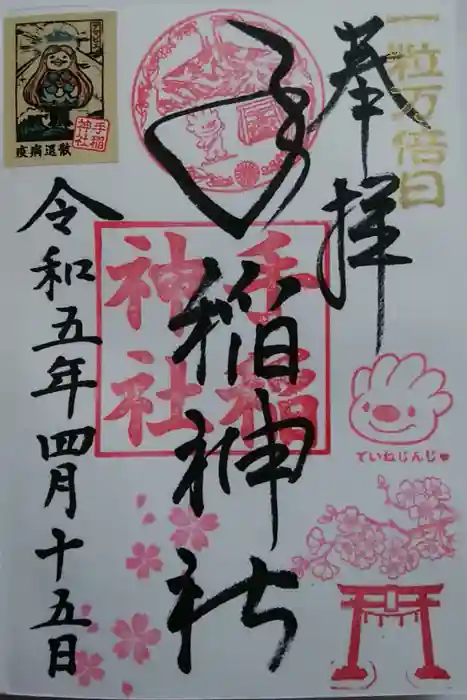 一粒万倍日
奉拝
手稲神社
手稲神社
ていねじんじゃ
令和五年四月十五日
アマビエ
手稲神社
疫病退散